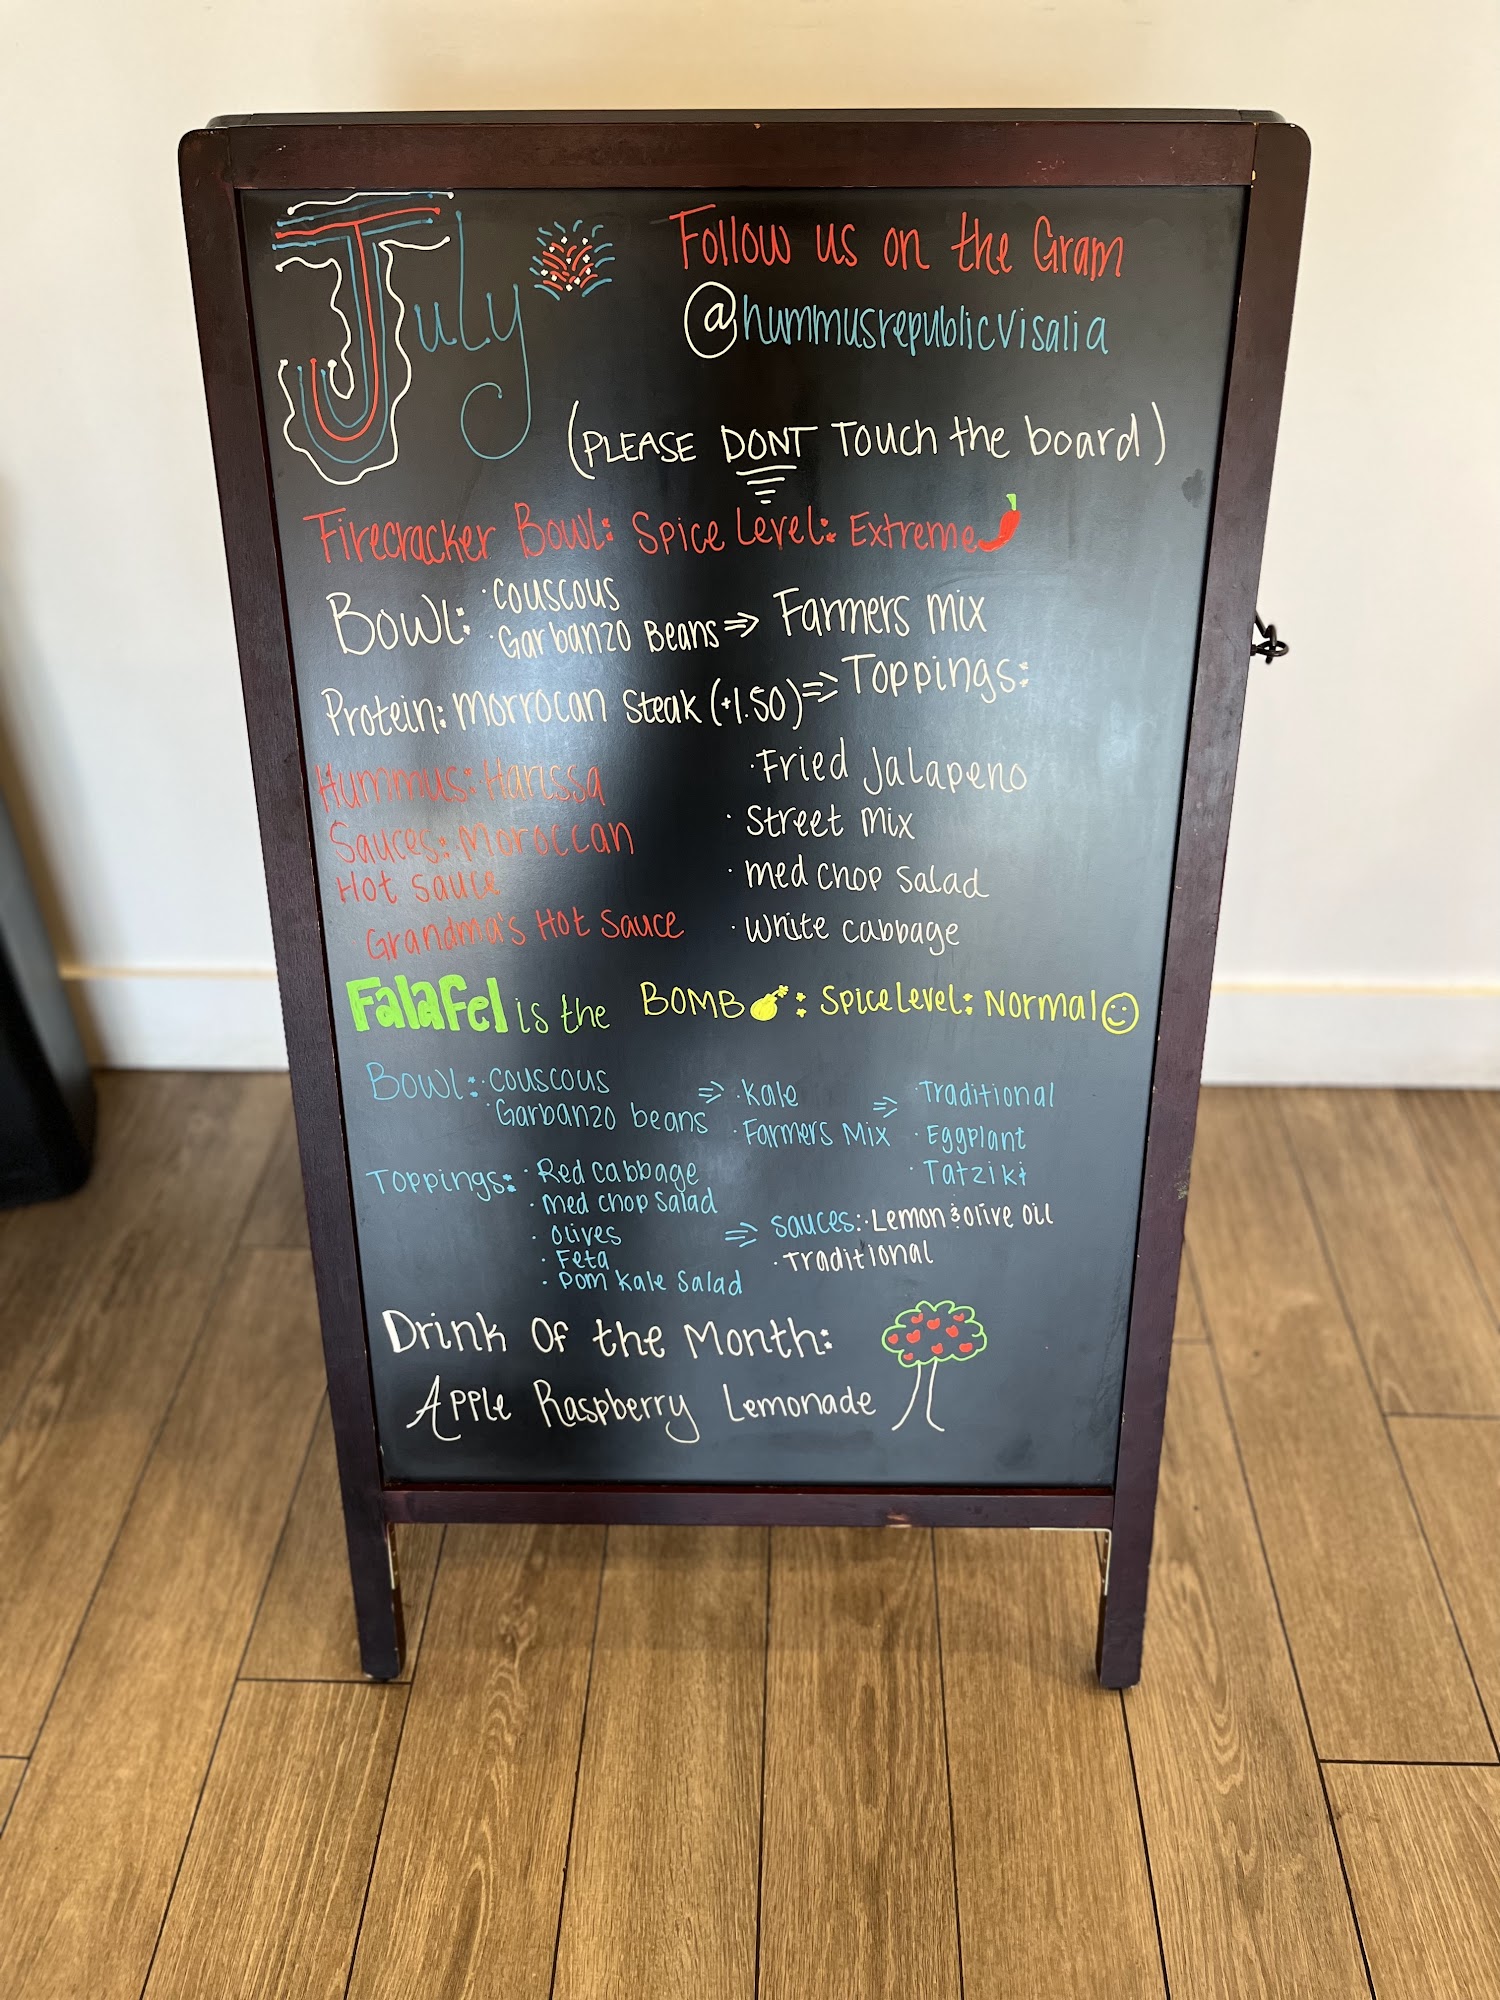 July
Follow us on the Gram
@hummusrepublicvisalia
(PLEASE DONT Touch the board)
Firecracker Bowl: Spice Level: Extreme
Bowl: · Couscous
· Garbanzo Beans ⇒ Farmers mix
Protein: Morrocan Steak (+1.50) ⇒ Toppings:
· Fried Jalapeno
· Street mix
· med chop salad
· White cabbage
Hummus: · Harissa
Sauces: Moroccan
Hot Sauce
Grandma's Hot Sauce
Falafel is the BOMB : Spice Level: Normal
Bowl: · Couscous
· Garbanzo beans ⇒ · Kale
· Farmers Mix ⇒ · Traditional
· Eggplant
· Tatziki
Toppings: · Red cabbage
· med chop salad
· Olives
· Feta
· Pom Kale Salad
⇒ Sauces: · Lemon & olive oil
· Traditional
Drink Of the Month:
Apple Raspberry Lemonade